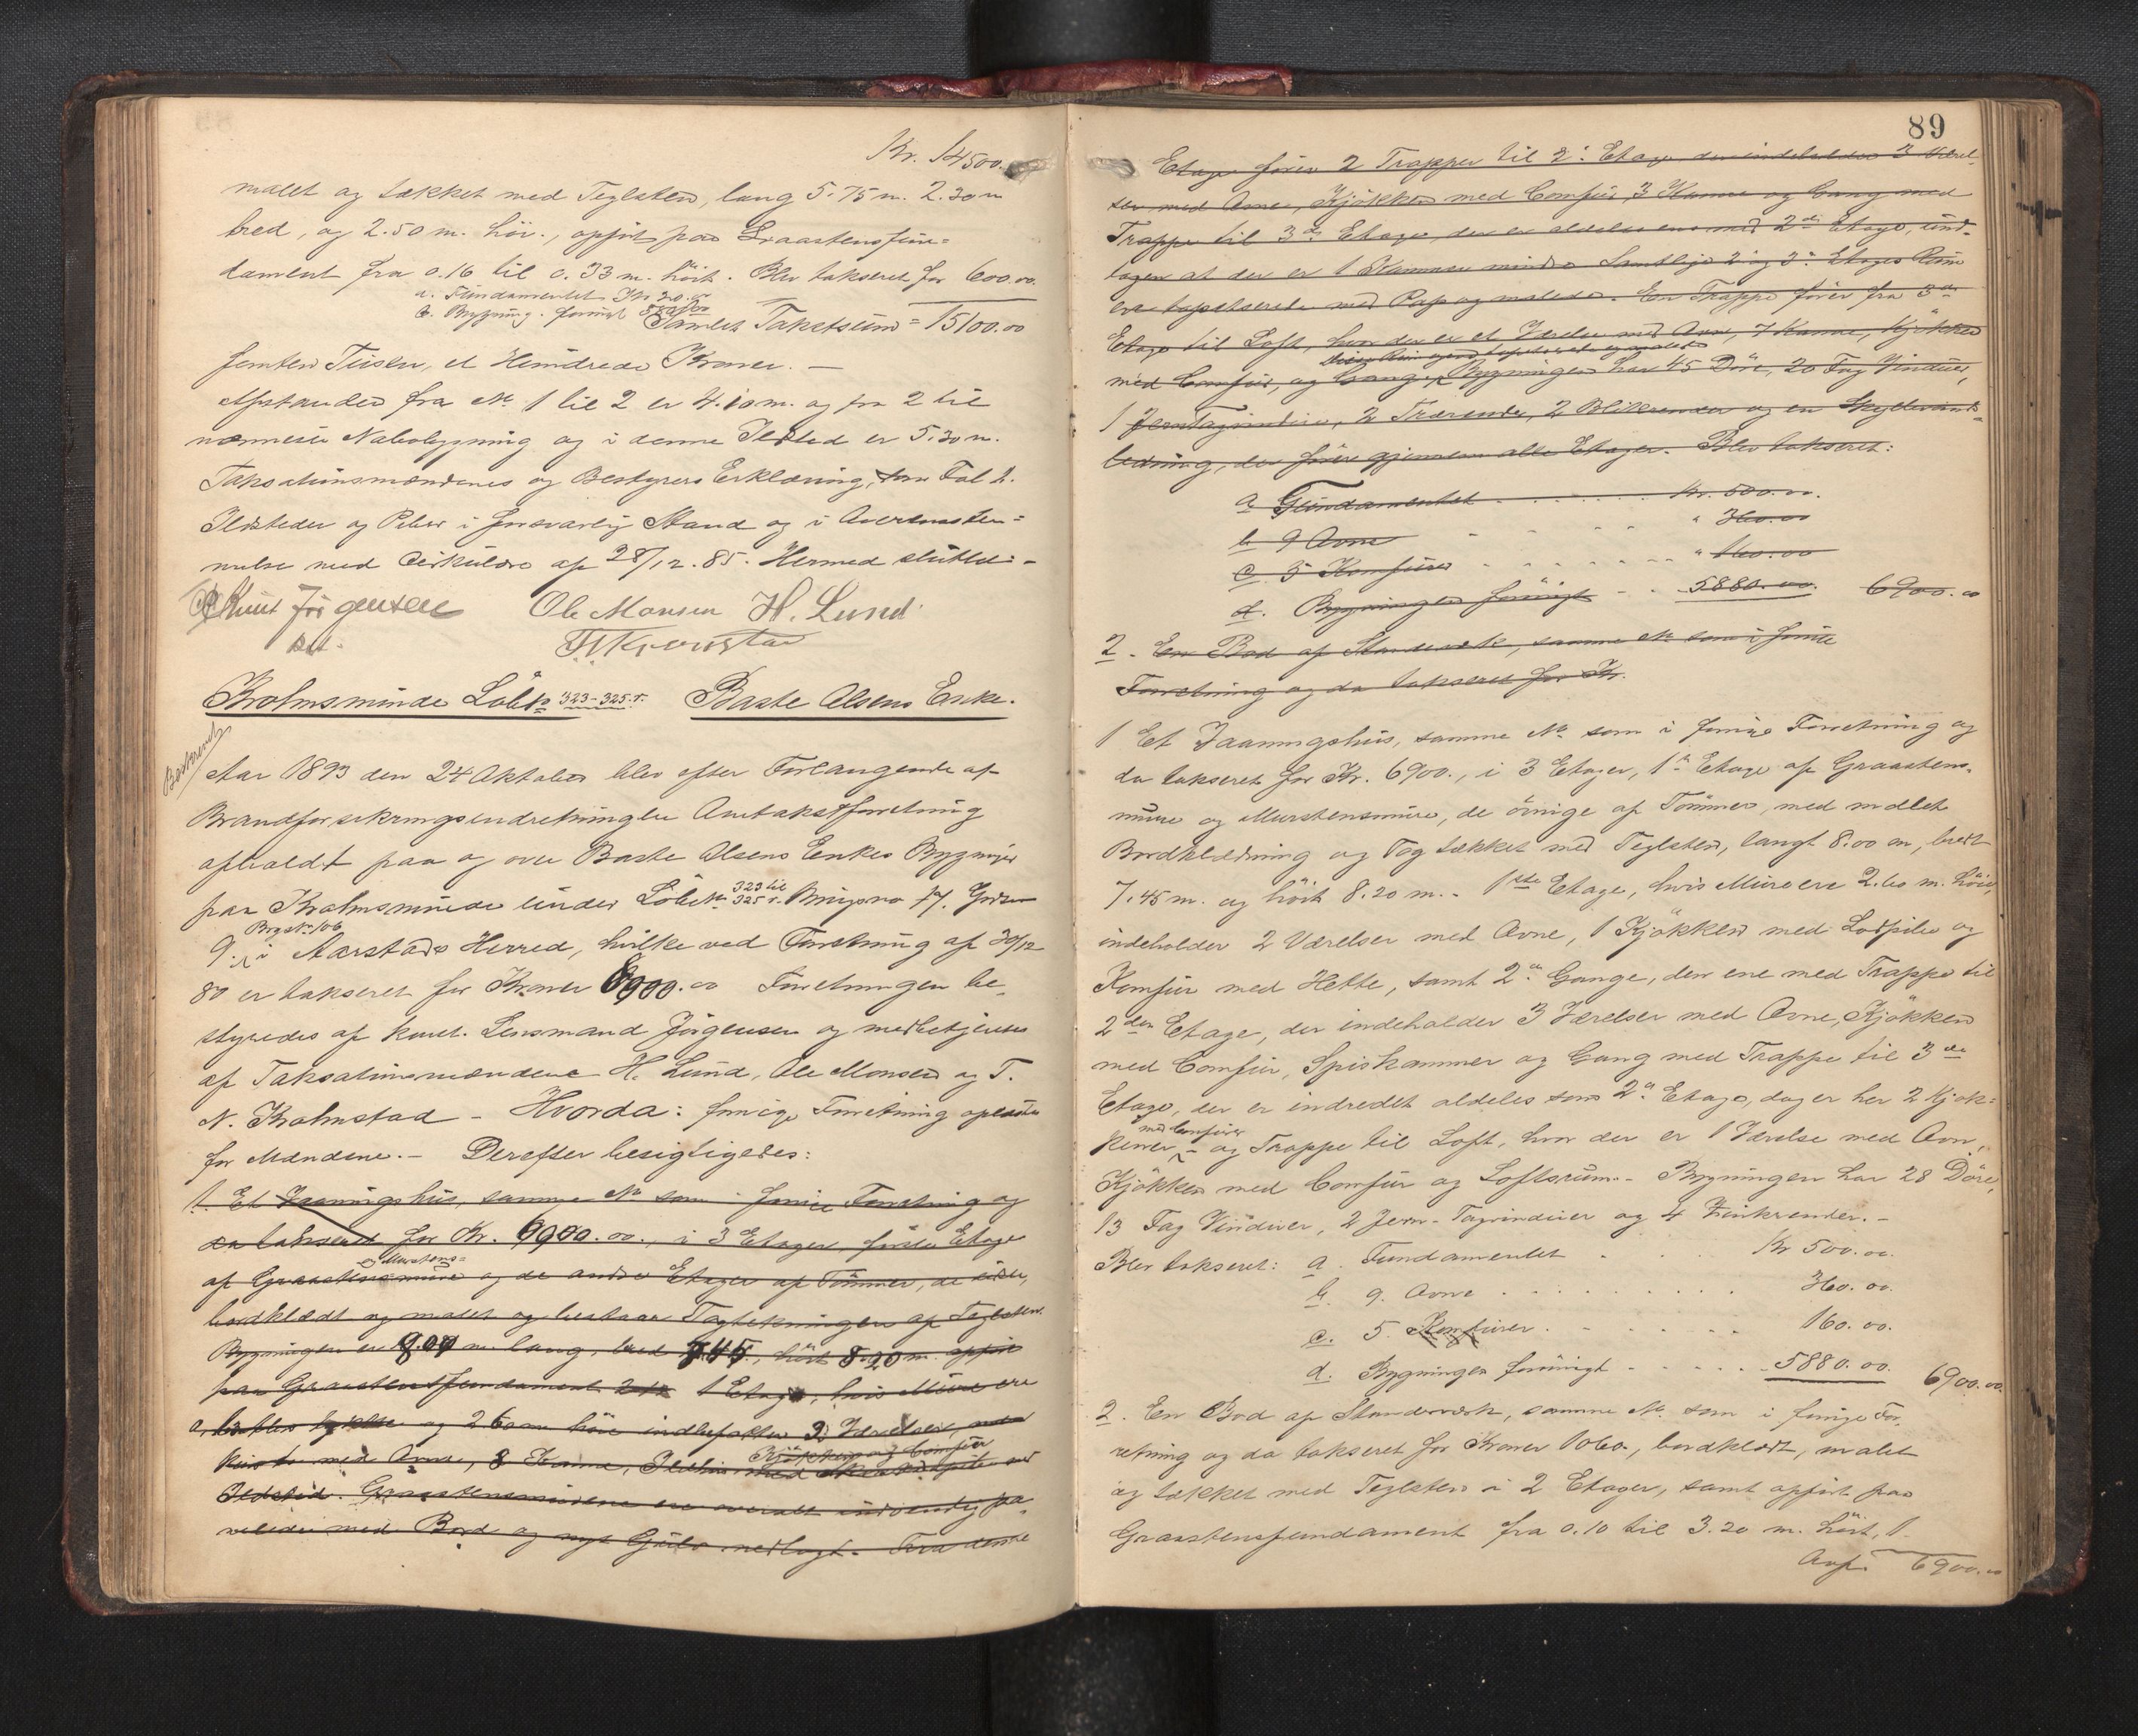 Kr. 14500.
malet og tækket med Teglsten, lang 5.75 m. 2.30 m
bred, og 2.50 m. höi., opfört paa Graastensfun=
dament fra 0.16 til 0.33 m. höit. Blev takseret for 600.00
a. Fundamentet Kr 20.00
b. Bygning. forövrigt 580.00
Samlet Takstsum = 15100.00
femten Tusen, et Hundrede Kroner. —
Afstanden fra No 1 til 2 er 4.10 m. og fra 2 til
nærmeste Nabobygning og i denne Ildsted er 5.30 m.
Taksationsmændenes og Bestyrers Erklæring, som Fol 2.
Ildsteder og Piber i forsvarlig Stand og i Overensstem=
melse med Cirkulære af 28/12.85. Hermed sluttet.
Knut Jörgensen Ole Monsen H. Lund
kst. T N Kronstad
Krohnsminde Löbeno 323-325.r. Baste Olsens Enke.
Aar 1893 den 24 Oktober blev efter Forlangende af
Brandforsikringsindretningen Omtakstforretning
afholdt paa og over Baste Olsens Enkes Bygninger
paa Krohnsminde under Löbeno 323 til 325 r. Brugsno 77. Grdsno
9. i Aarstads Herred, hvilke ved Forretning af 30/12
Brgsno 106
80 er takseret for Kroner 6900.00 Forretningen be-
styredes af konst. Lensmand Jörgensen og medbetjentes
af Taksationsmændene H. Lund, Ole Monsen og T.
N. Krohnstad — Hvorda: forrige Forretning oplæstes
for Mændene. — Derefter besigtigedes:
1. Et Vaaningshus, samme No som i forrige Forretning og
da takseret for Kr. 6900.00., i 3 Etager, förste Etage
af Graastensmure og de andre Etager af Tömmer, de
og Murstens=
bordklædt og malet og bestaar Tagtækningen af Teglsten.
Bygningen er 8.00 m. lang, bred 7.45, höit 8.20 m. opfört
paa Graastensfundament 1 Etage, hvis Mure ere
og 2.60 m höie indbefatter 2 Værelser,
med Ovne, 8
Kjökken og Comfur
Ildsted. Graastensmurene ere overalt indvendig pa-
nelede med Bord og nyt Gulv nedlagt. Fra denne
89
Etage förer 2 Trapper til 2. Etage der indeholder 3 Værel-
ser med Ovne, Kjökken med Comfur, 3 Kamre og Gang med
Trappe til 3de Etage, der er aldeles ens med 2den Etage, und-
tagen at der er 1 Kammer mindre. Samtlige 2 og 3. Etages Rum
ere tapetserede med Pap og malede. En Trappe förer fra 3de
Etage til Loft, hvor der er et Værelse med Ovn, 7 Kamre, Kjökken
med Comfur, og Gang. Bygningen har 45 Döre, 20 Fag Vinduer,
disse Rum ogsaa tapetserede og malede
1 Jerntagvindue, 2 Trærender, 2 Blikrender og en
ledning, der förer gjennem alle Etager. Blev takseret:
a Fundamentet . . . . Kr. 500.00.
b 9 Ovne . . . . " 360.00
c. 5 Komfurer . . . . " 160.00
d. Bygningen forövrigt . . 5880.00. 6900.00
2. En Bod af Stenderværk, samme No som i forrige
Forretning og da takseret for Kr.
1 Et Vaaningshus, samme No som i forrige Forretning og
da takseret for Kr. 6900., i 3 Etager, 1ste Etage af Graastens-
mure og Murstensmure, de övrige af Tömmer, med malet
Bordklædning og Tag tækket med Teglsten, langt 8.00 m, bredt
7.45 m. og höit 8.20 m. — 1ste Etage, hvis Mure ere 2.60 m. höie,
indeholder 2 Værelser med Ovne, 1 Kjökken med Lodpibe og
Komfur med Hette, samt 2de Gange, den ene med Trappe til
2den Etage, der indeholder 3 Værelser med Ovne, Kjökken
med Comfur, Spiskammer og Gang med Trappe til 3de
Etage, der er indredet aldeles som 2. Etage, dog er her 2 Kjök=
kener — og Trappe til Loft, hvor der er 1 Værelse med Ovn,
med Comfurer
Kjökken med Comfur og Loftsrum. — Bygningen har 28 Döre,
13 Fag Vinduer, 2 Jern-Tagvinduer og 4 Zinkrender. —
Blev takseret: a. Fundamentet . . . Kr 500.00.
b. 9. Ovne . . . . 360.00.
c. 5. Komfurer . . . . 160.00.
d. Bygningen forövrigt . . . . 5880.00. 6900.00.
2. En Bod af Stenderværk, samme No. som i forrige For-
retning og da takseret for Kroner 1060., bordklædt, malet
og tækket med Teglsten i 2 Etager, samt opfört paa
Graastensfundament fra 0.10 til 3.20 m. höit, 1.
Ovf. 6900.00